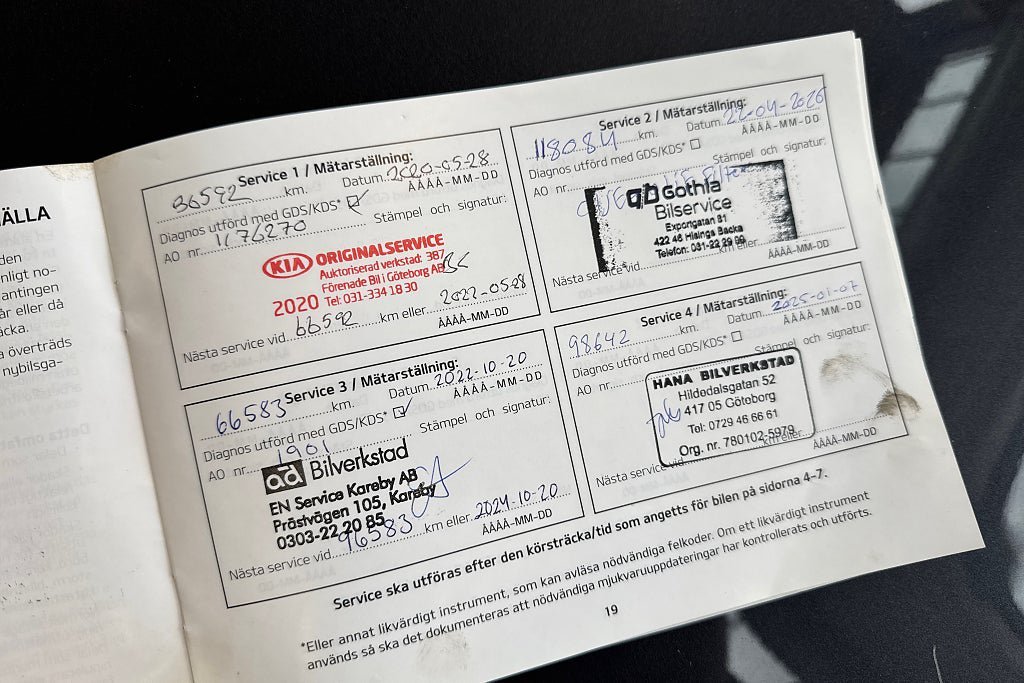 ÄLLA
den
nligt no-
antingen
år eller då
äcka.
a överträds
nybilsga-
Service 1 / Mätarställning:
36592 km. Datum 2020-05-28
ÅÅÅÅ-MM-DD
Diagnos utförd med GDS/KDS*
AO nr. 1176270 Stämpel och signatur:
KIA ORIGINALSERVICE
Auktoriserad verkstad: 387
Förenade Bil i Göteborg AB
2020 Tel: 031-334 18 30
Nästa service vid 66592 km eller 2022-05-28
ÅÅÅÅ-MM-DD
Service 2 / Mätarställning:
118084 km. Datum 22-04-2026
ÅÅÅÅ-MM-DD
Diagnos utförd med GDS/KDS*
Stämpel och signatur:
AO nr.
Gothia
Bilservice
Exportgatan 81
422 46 Hisings Backa
Telefon: 031-22 29 99
Nästa service vid km eller
ÅÅÅÅ-MM-DD
Service 3 / Mätarställning:
66583 km. Datum 2022-10-20
ÅÅÅÅ-MM-DD
Diagnos utförd med GDS/KDS*
AO nr. 1901 Stämpel och signatur:
ad Bilverkstad
EN Service Kareby AB
Prästvägen 105, Kareby
0303-22 20 85
Nästa service vid 96583 km eller 2024-10-20
ÅÅÅÅ-MM-DD
Service 4 / Mätarställning:
98642 km. Datum 2025-01-07
ÅÅÅÅ-MM-DD
Diagnos utförd med GDS/KDS*
AO nr. Stämpel och signatur:
HANA BILVERKSTAD
Hildedalsgatan 52
417 05 Göteborg
Tel: 0729 46 66 61
Org. nr. 780102-5979
Nästa service vid km eller
ÅÅÅÅ-MM-DD
Service ska utföras efter den körsträcka/tid som angetts för bilen på sidorna 4–7.
*Eller annat likvärdigt instrument, som kan avläsa nödvändiga felkoder. Om ett likvärdigt instrument
används så ska det dokumenteras att nödvändiga mjukvaruuppdateringar har kontrollerats och utförts.
19